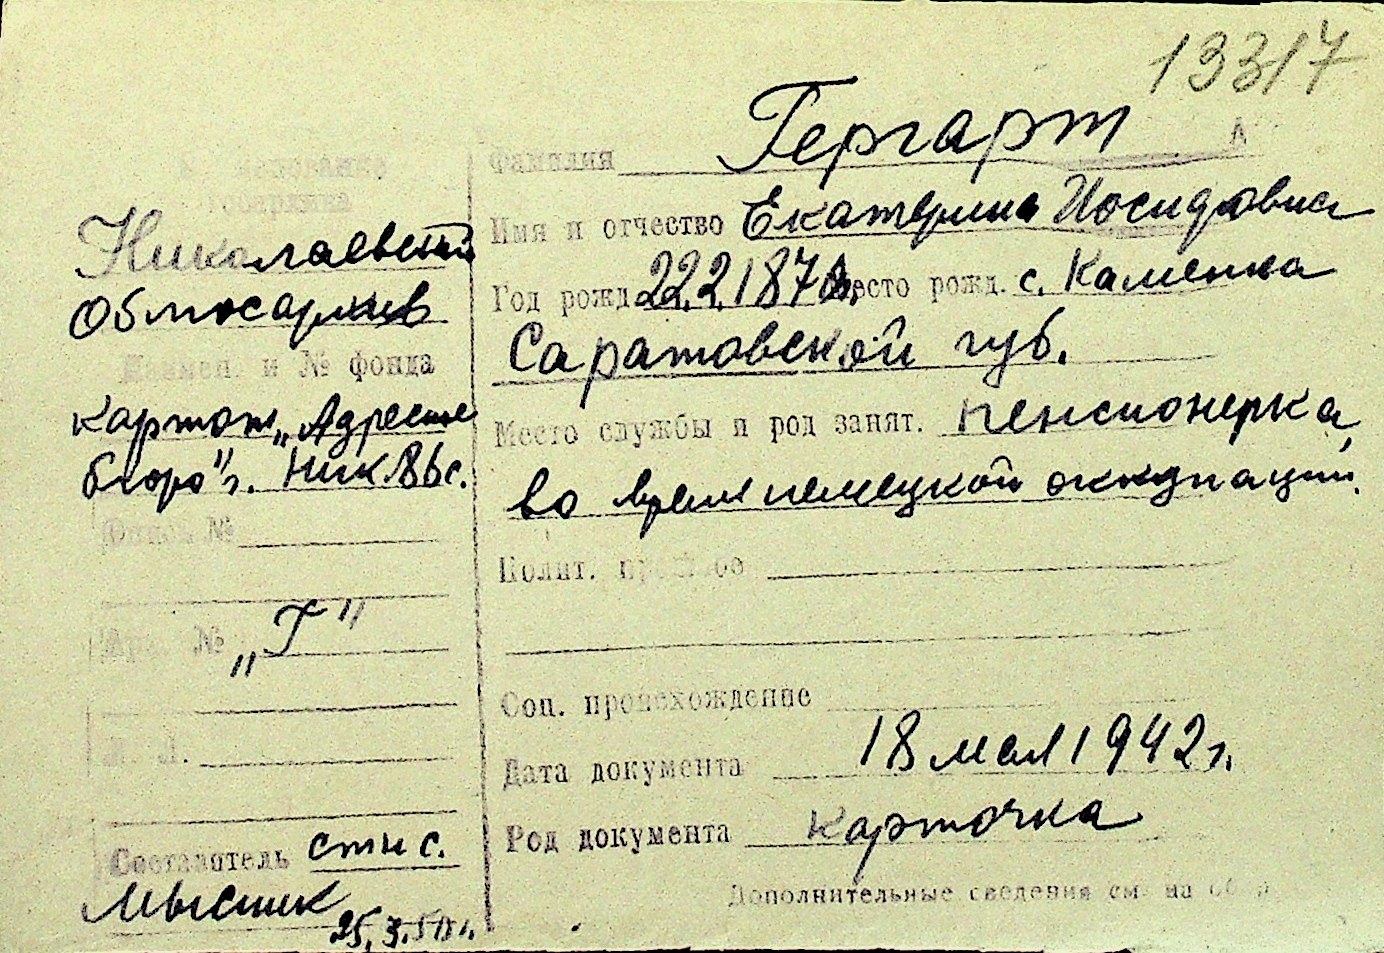 13317
Фамилия Гергарт
Имя и отчество Екатерина Иосифовна
Год рожд. 22.2.187 Место рожд. с. Каменка
Саратовской губ.
Место службы и род занят. пенсионерка,
во время немецкой оккупации.
Полит.
Соц. происхождение
Дата документа 18 мая 1942 г.
Род документа карточка
Дополнительные сведения см. на об
Николаевский
Облгосархив
Наимен. и № фонда
картот. „Адресное
бюро" г. Ник
Опись №
Арх. № „Г"
Составитель ст. н. с.
Мысник
25.3.50 г.